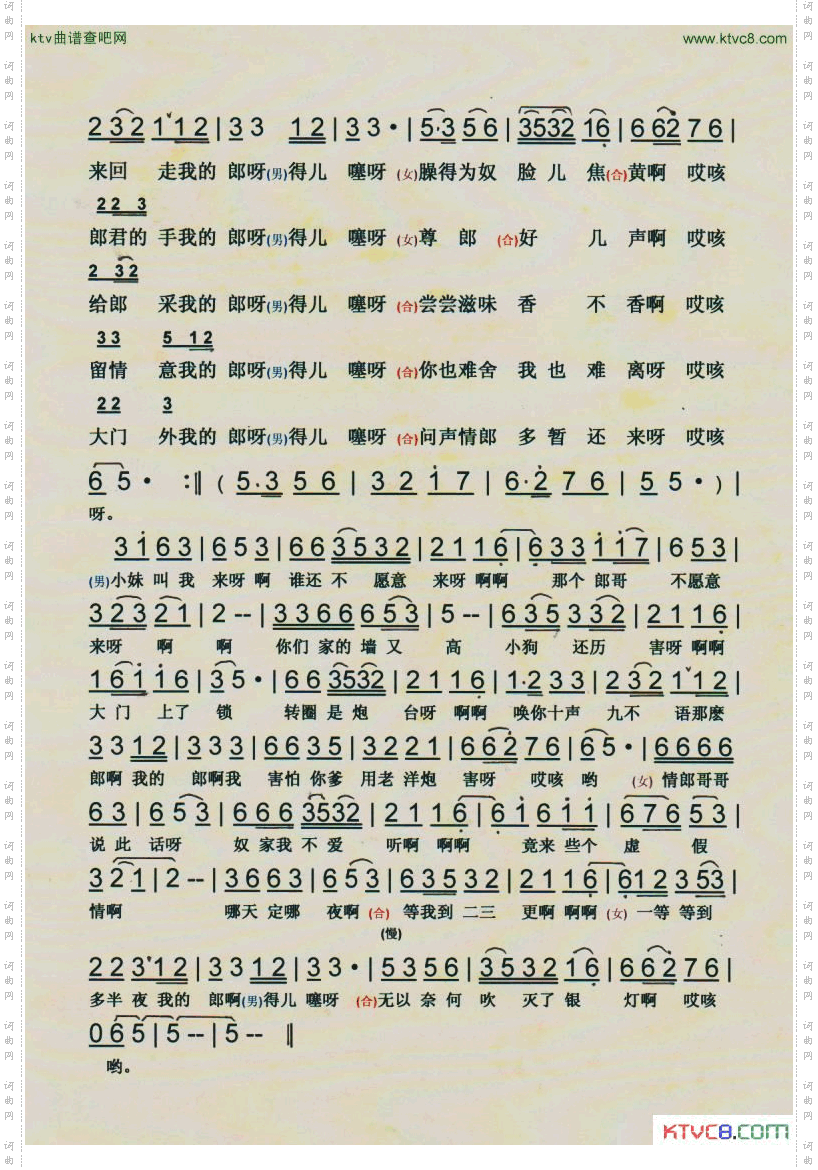 ktv曲谱查吧网 www.ktvc8.com
2 3 2 1 1 2 | 3 3 1 2 | 3 3 · | 5 · 3 5 6 | 3532 16 | 6 62 7 6 |
来回 走我的 郎呀(男)得儿 噻呀 (女)臊得为奴 脸 儿 焦(合)黄啊 哎咳
2 2 3
郎君的 手我的 郎呀(男)得儿 噻呀 (女)尊 郎 (合)好 几 声啊 哎咳
2 3 2
给郎 采我的 郎呀(男)得儿 噻呀 (合)尝尝滋味 香 不 香啊 哎咳
3 3 5 1 2
留情 意我的 郎呀(男)得儿 噻呀 (合)你也难舍 我 也 难 离呀 哎咳
2 2 3
大门 外我的 郎呀(男)得儿 噻呀 (合)问声情郎 多 暂 还 来呀 哎咳
6 5 · :‖ ( 5 · 3 5 6 | 3 2 1 7 | 6 · 2 7 6 | 5 5 · ) |
呀。
3 1 6 3 | 6 5 3 | 6 6 3 5 3 2 | 2 1 1 6 | 6 3 3 1 1 7 | 6 5 3 |
(男)小妹 叫 我 来呀 啊 谁还 不 愿意 来呀 啊啊 那个 郎哥 不愿意
3 2 3 2 1 | 2 -- | 3 3 6 6 6 5 3 | 5 -- | 6 3 5 3 3 2 | 2 1 1 6 |
来呀 啊 啊 你们 家的 墙 又 高 小狗 还历 害呀 啊啊
1 6 1 1 6 | 3 5 · | 6 6 3532 | 2 1 1 6 | 1 · 2 3 3 | 2 3 2 1 1 2 |
大 门 上了 锁 转圈 是 炮 台呀 啊啊 唤你十声 九不 语那麽
3 3 1 2 | 3 3 3 | 6 6 3 5 | 3 2 2 1 | 6 6 2 7 6 | 6 5 · | 6 6 6 6
郎啊 我的 郎啊我 害怕 你爹 用老 洋炮 害呀 哎咳 哟 (女) 情郎哥哥
6 3 | 6 5 3 | 6 6 6 3532 | 2 1 1 6 | 6 1 6 1 1 | 6 7 6 5 3 |
说 此 话呀 奴 家我 不 爱 听啊 啊啊 竟来 些个 虚 假
3 2 1 | 2 -- | 3 6 6 3 | 6 5 3 | 6 3 5 3 2 | 2 1 1 6 | 6 1 2 3 5 3 |
情啊 哪天 定哪 夜啊 (合) 等我到 二三 更啊 啊啊 (女) 一等 等到
(慢)
2 2 3 1 2 | 3 3 1 2 | 3 3 · | 5 3 5 6 | 3 5 3 2 1 6 | 6 6 2 7 6 |
多半 夜 我的 郎啊(男)得儿 噻呀 (合)无以 奈 何 吹 灭了 银 灯啊 哎咳
0 6 5 | 5 -- | 5 -- ‖
哟。
KTVC8.COM